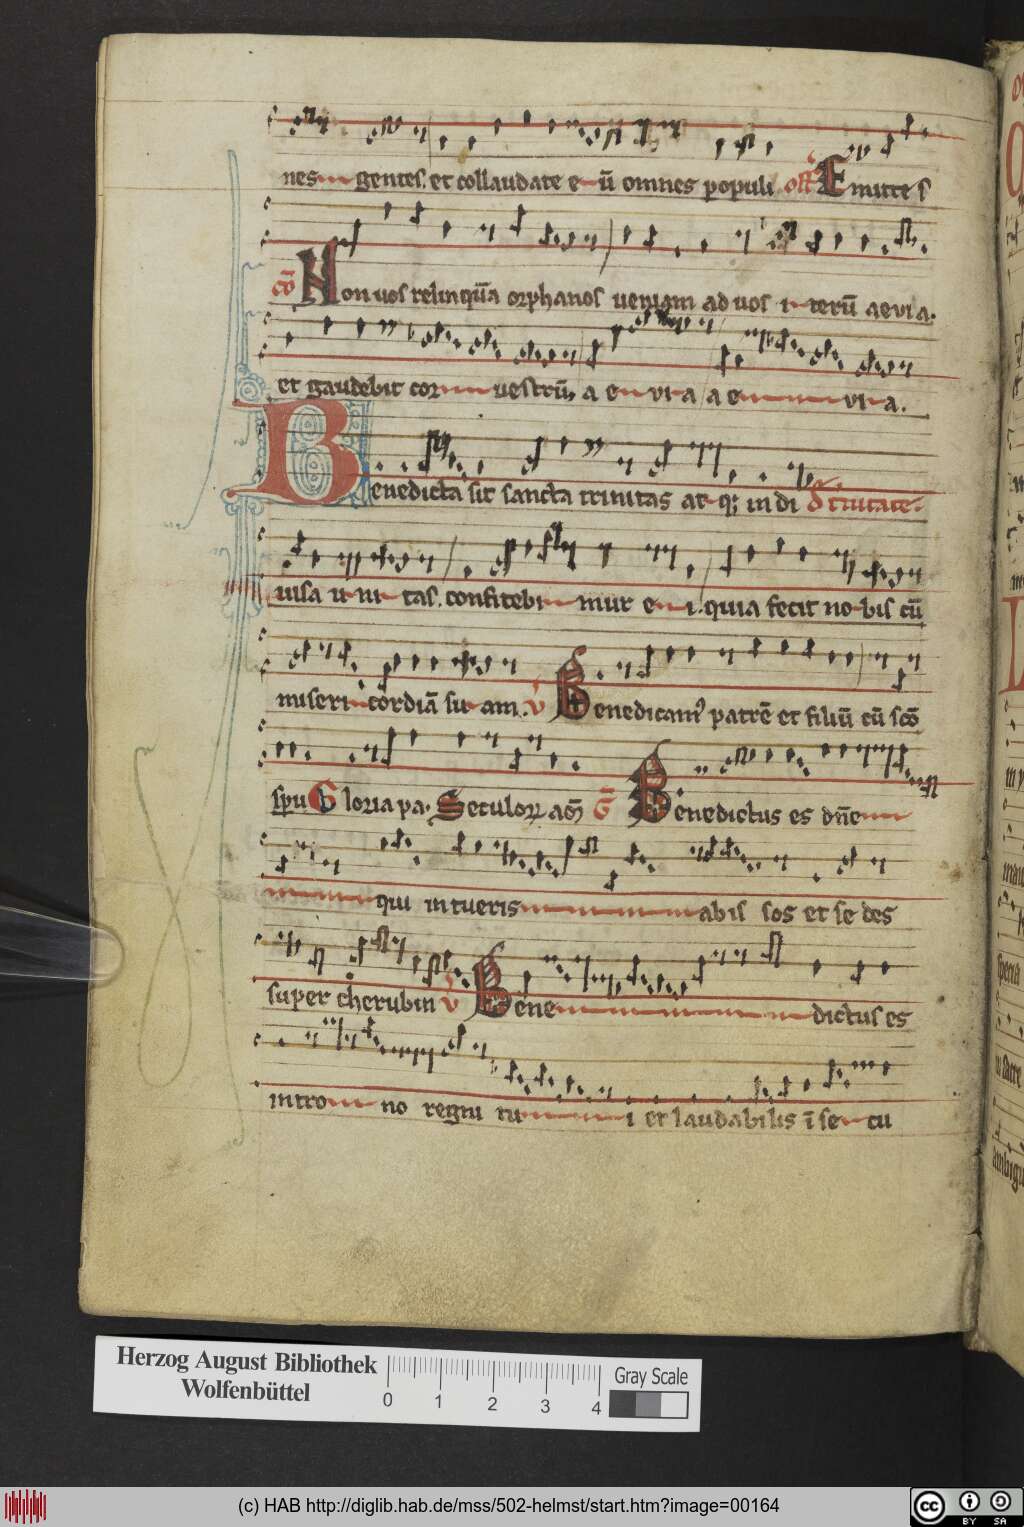 nes gentes. et collaudate e ū omnes populi off Emitte s
cō Non vos relinquā orphanos veniam ad vos i terū aevia.
et gaudebit cor vestrū, a e vi a a e vi a.
Benedicta sit sancta trinitas at q; in di d' t'nitate
visa u ni tas. confitebi mur e i. quia fecit no bis cū
miseri cordiā su am. v Benedicam' patrē et filiū cū scō
spu Gloria pa. Seculor, am̄ G Benedictus es dn̄e
qui intueris abis sos et se des
super cherubin v Bene dictus es
intro no regni tu i et laudabilis ī se cu
Herzog August Bibliothek
Wolfenbüttel
0 1 2 3 4
Gray Scale
(c) HAB http://diglib.hab.de/mss/502-helmst/start.htm?image=00164
cc BY SA